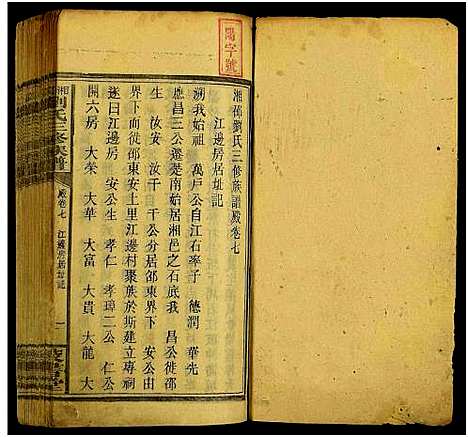 陽字號
湘邵劉氏三修族譜殿卷七
江邊房居址記
溯我始祖 萬戶公自江右率子 德潤 華先
應昌三公遷楚南始居湘邑之石底我 昌公徙邵
生 汝安 汝千 千公分居邵東界下 安公由
界下徙邵東安土里江邊村聚族於斯建立專祠
因曰江邊房 安公生 孝仁 孝璋二公 仁公
開六房 大榮 大華 大富 大貴 大龍 大
劉氏三修族譜
殿卷七 江邊房居址記 一